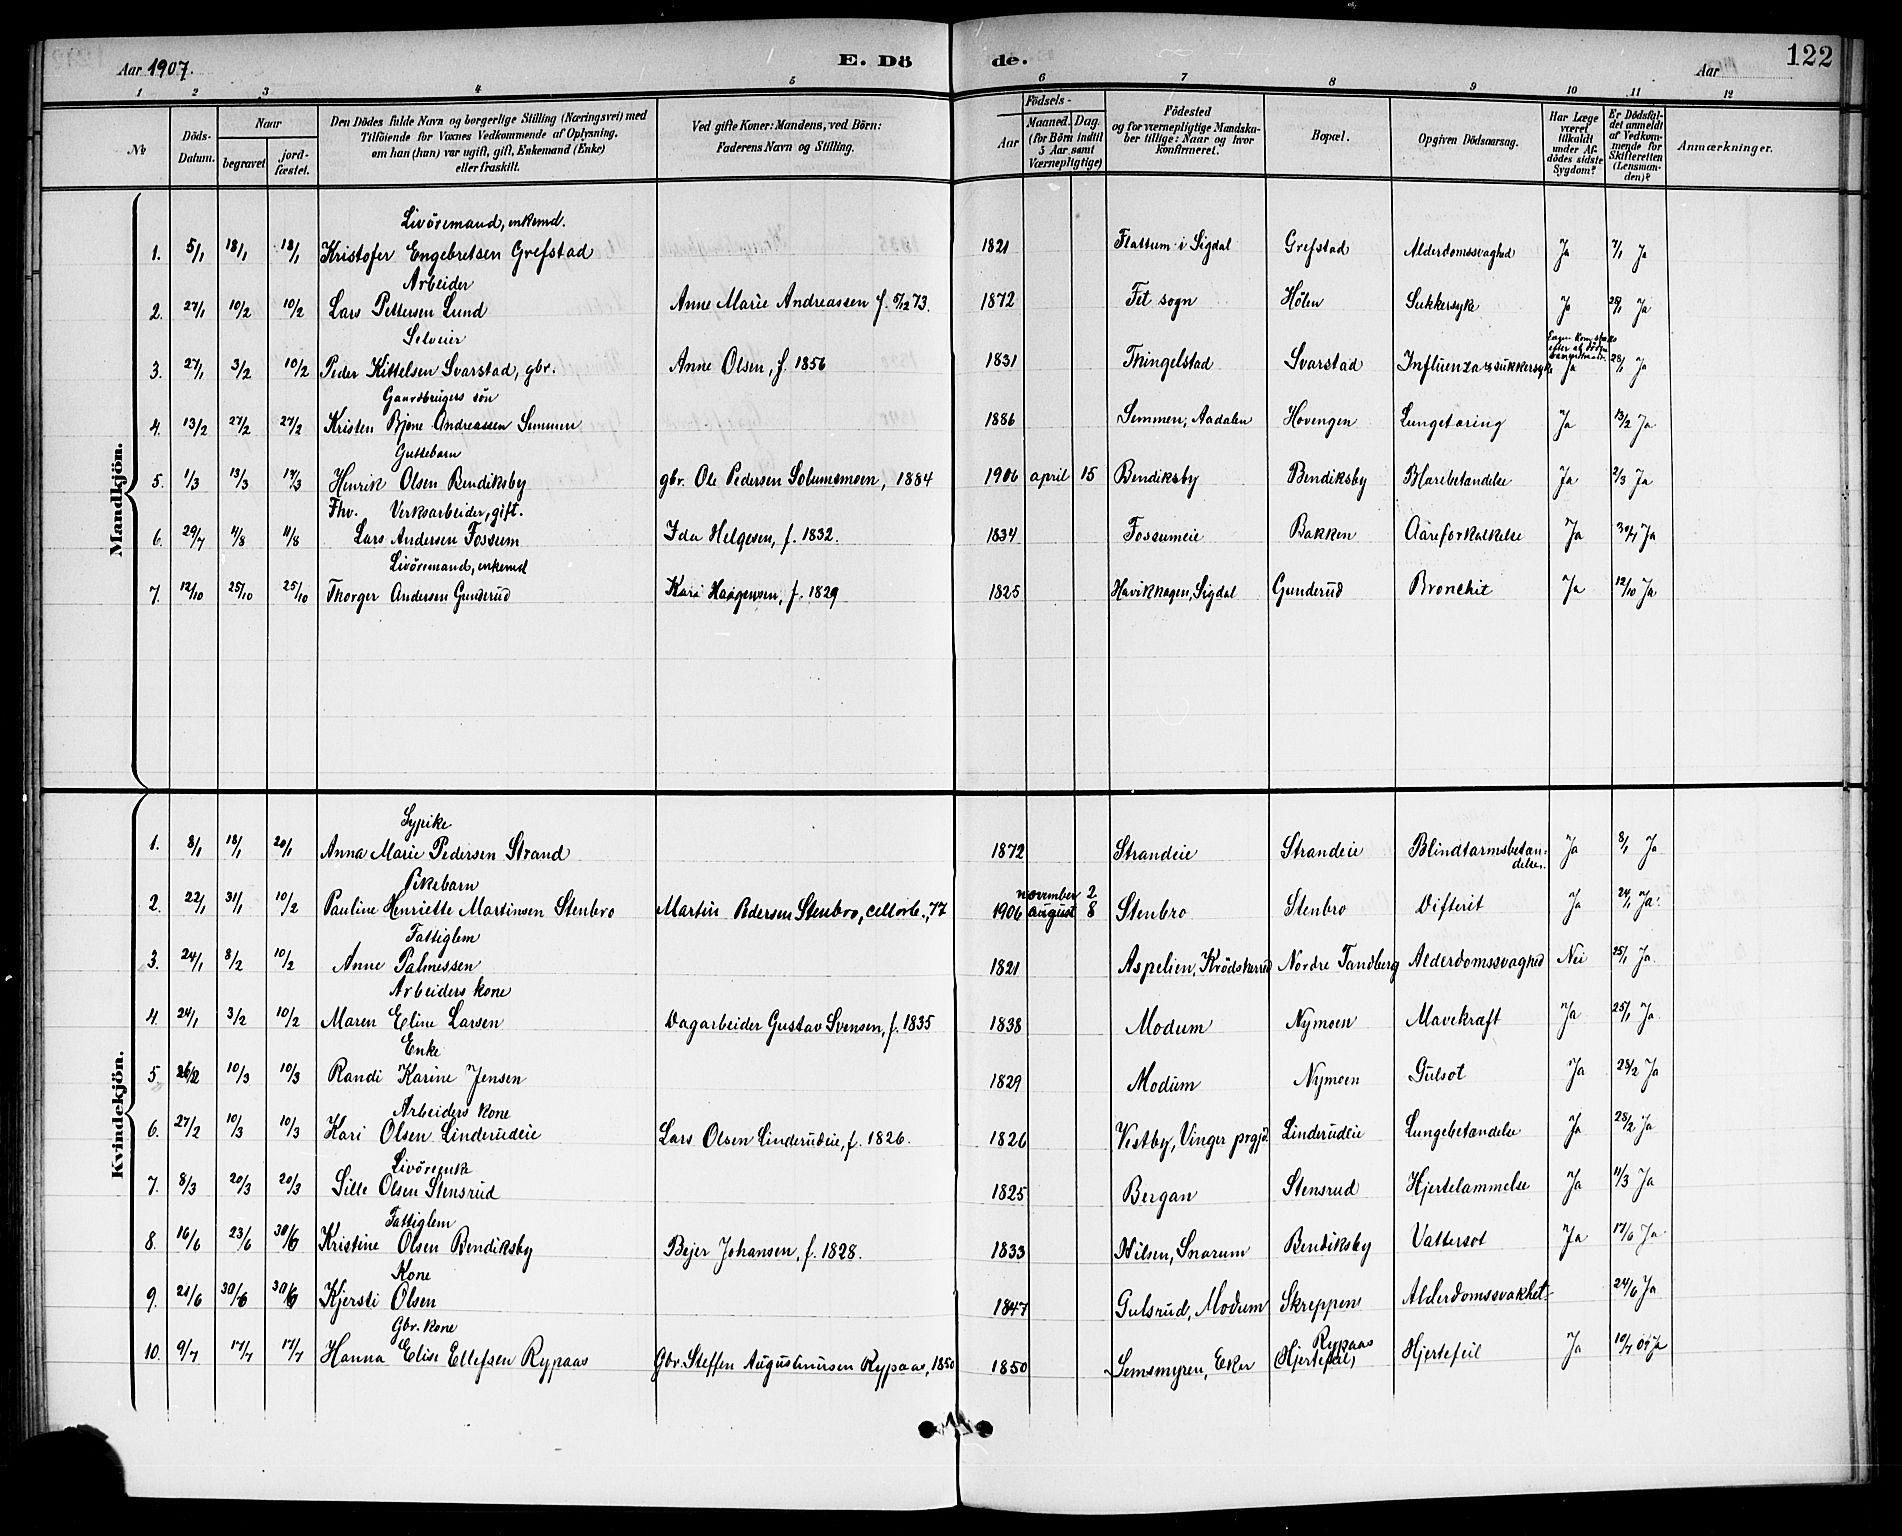 Aar 1907. E. Dö de. Aar 122
1 2 3 4 5 6 7 8 9 10 11 12
No
Döds-Datum.
Naar
begravet
jord-fæstet.
Den Dödes fulde Navn og borgerlige Stilling (Næringsvei) med
Tilföiende for Voxnes Vedkommende af Oplysning,
om han (hun) var ugift, gift, Enkemand (Enke)
eller fraskilt.
Ved gifte Koner: Mandens, ved Börn:
Faderens Navn og Stilling.
Födsels-
Aar
Maaned. Dag.
(for Börn indtil
5 Aar samt
Værnepligtige)
Födested
og for værnepligtige Mandska-
ber tillige: Naar og hvor
konfirmeret.
Bopæl.
Opgiven Dödsaarsag.
Har Læge
været
tilkaldt
under Af-
dödes sidste
Sygdom?
Er Dödsfal-
det anmeldt
af Vedkom-
mende for
Skifteretten
(Lensman-
den)?
Anmærkninger.
Mandkjön.
Livöremand, enkemd.
1. 5/1 18/1 18/1 Kristofer Engebretsen Grefstad 1821 Flattum i Sigdal Grefstad Alderdomssvaghed Ja 7/1 Ja
Arbeider
2. 27/1 10/2 10/2 Lars Pettersen Lund Anne Marie Andreassen f. 5/12 73. 1872 Fet sogn Hölen Sukkersyke Jo 28/1 Ja
Selveier
3. 27/1 3/2 10/2 Peder Kittelsen Svarstad, gbr. Anne Olsen, f. 1856 1831 Thingelstad Svarstad Influenza & sukkersyke Ja 28/1 Ja
Gaardbrugers sön
4. 13/2 27/2 27/2 Kristen Bjone Andreassen Semmen 1886 Semmen, Aadalen Hovengen Lungetæring Ja 13/2 Ja
Guttebarn
5. 1/3 13/3 17/3 Henrik Olsen Bendiksby gbr. Ole Pedersen Solumsmoen, 1884 1906 april 15 Bendiksby Bendiksby Blærebetændelse Ja 2/3 Ja
Fhv. Verksarbeider, gift.
6. 29/7 4/8 11/8 Lars Andersen Fossum Ida Helgesen, f. 1832. 1834 Fossumeie Bakken Aareforkalkelse Ja 30/7 Ja
Livöremand, enkemd
7. 12/10 25/10 25/10 Thorger Andersen Gunderud Kari Haagensen, f. 1829 1825 Havikhagen, Sigdal Gunderud Bronchit Ja 12/10 Ja
Kvindekjön.
Sypike
1. 8/1 18/1 20/1 Anna Marie Pedersen Strand 1872 Strandeie Strandeie Blindtarmsbetæn-
delse. Ja 8/1 Ja
Pikebarn
november 2
2. 22/1 31/1 10/2 Pauline Henriette Martinsen Stenbro Martin Pedersen Stenbro, cellarb., 77 1906 august 8 Stenbro Stenbro Difterit Ja 24/1 Ja.
Fattiglem
3. 24/1 8/2 10/2 Anne Palmessen 1821 Aspelien, Krödsherred Nordre Tandberg Alderdomssvaghed Nei 25/1 Ja
Arbeiders kone
4. 24/1 3/2 10/2 Maren Eline Larsen Dagarbeider Gustav Svensen, f. 1835 1838 Modum Nymoen Mavekræft Ja 25/1 Ja
Enke
5. 26/2 10/3 10/3 Randi Karine Jensen 1829 Modum Nymoen Gulsot Ja 28/2 Ja
Arbeiders kone
6. 27/2 10/3 10/3 Kari Olsen Linderudeie Lars Olsen Linderudeie, f. 1826. 1826 Vestby, Vinger prgjd. Linderudeie Lungebetændelse Ja 28/2 Ja
Livöreenke
7. 8/3 20/3 20/3 Sille Olsen Stensrud 1825 Bergan Stensrud Hjertelammelse Ja 11/3 Ja
Fattiglem
8. 16/6 23/6 30/6 Kristine Olsen Bendiksby Bejer Johansen, f. 1828. 1833 Nilsen, Snarum Bendiksby Vattersot Ja 17/6 Ja
Kone
9. 21/6 30/6 30/6 Kjersti Olsen 1847 Gulsrud, Modum Skreppen Alderdomssvakhet 24/6 Ja
Gbr. kone
Rypaas
10. 9/7 17/7 17/7 Hanna Elise Ellefsen Rypaas Gbr. Steffen Augustinusen Rypaas, 1850 1850 Semsmyren, Eker (Hjertefeil) Hjertefeil Ja 10/7 07 Ja